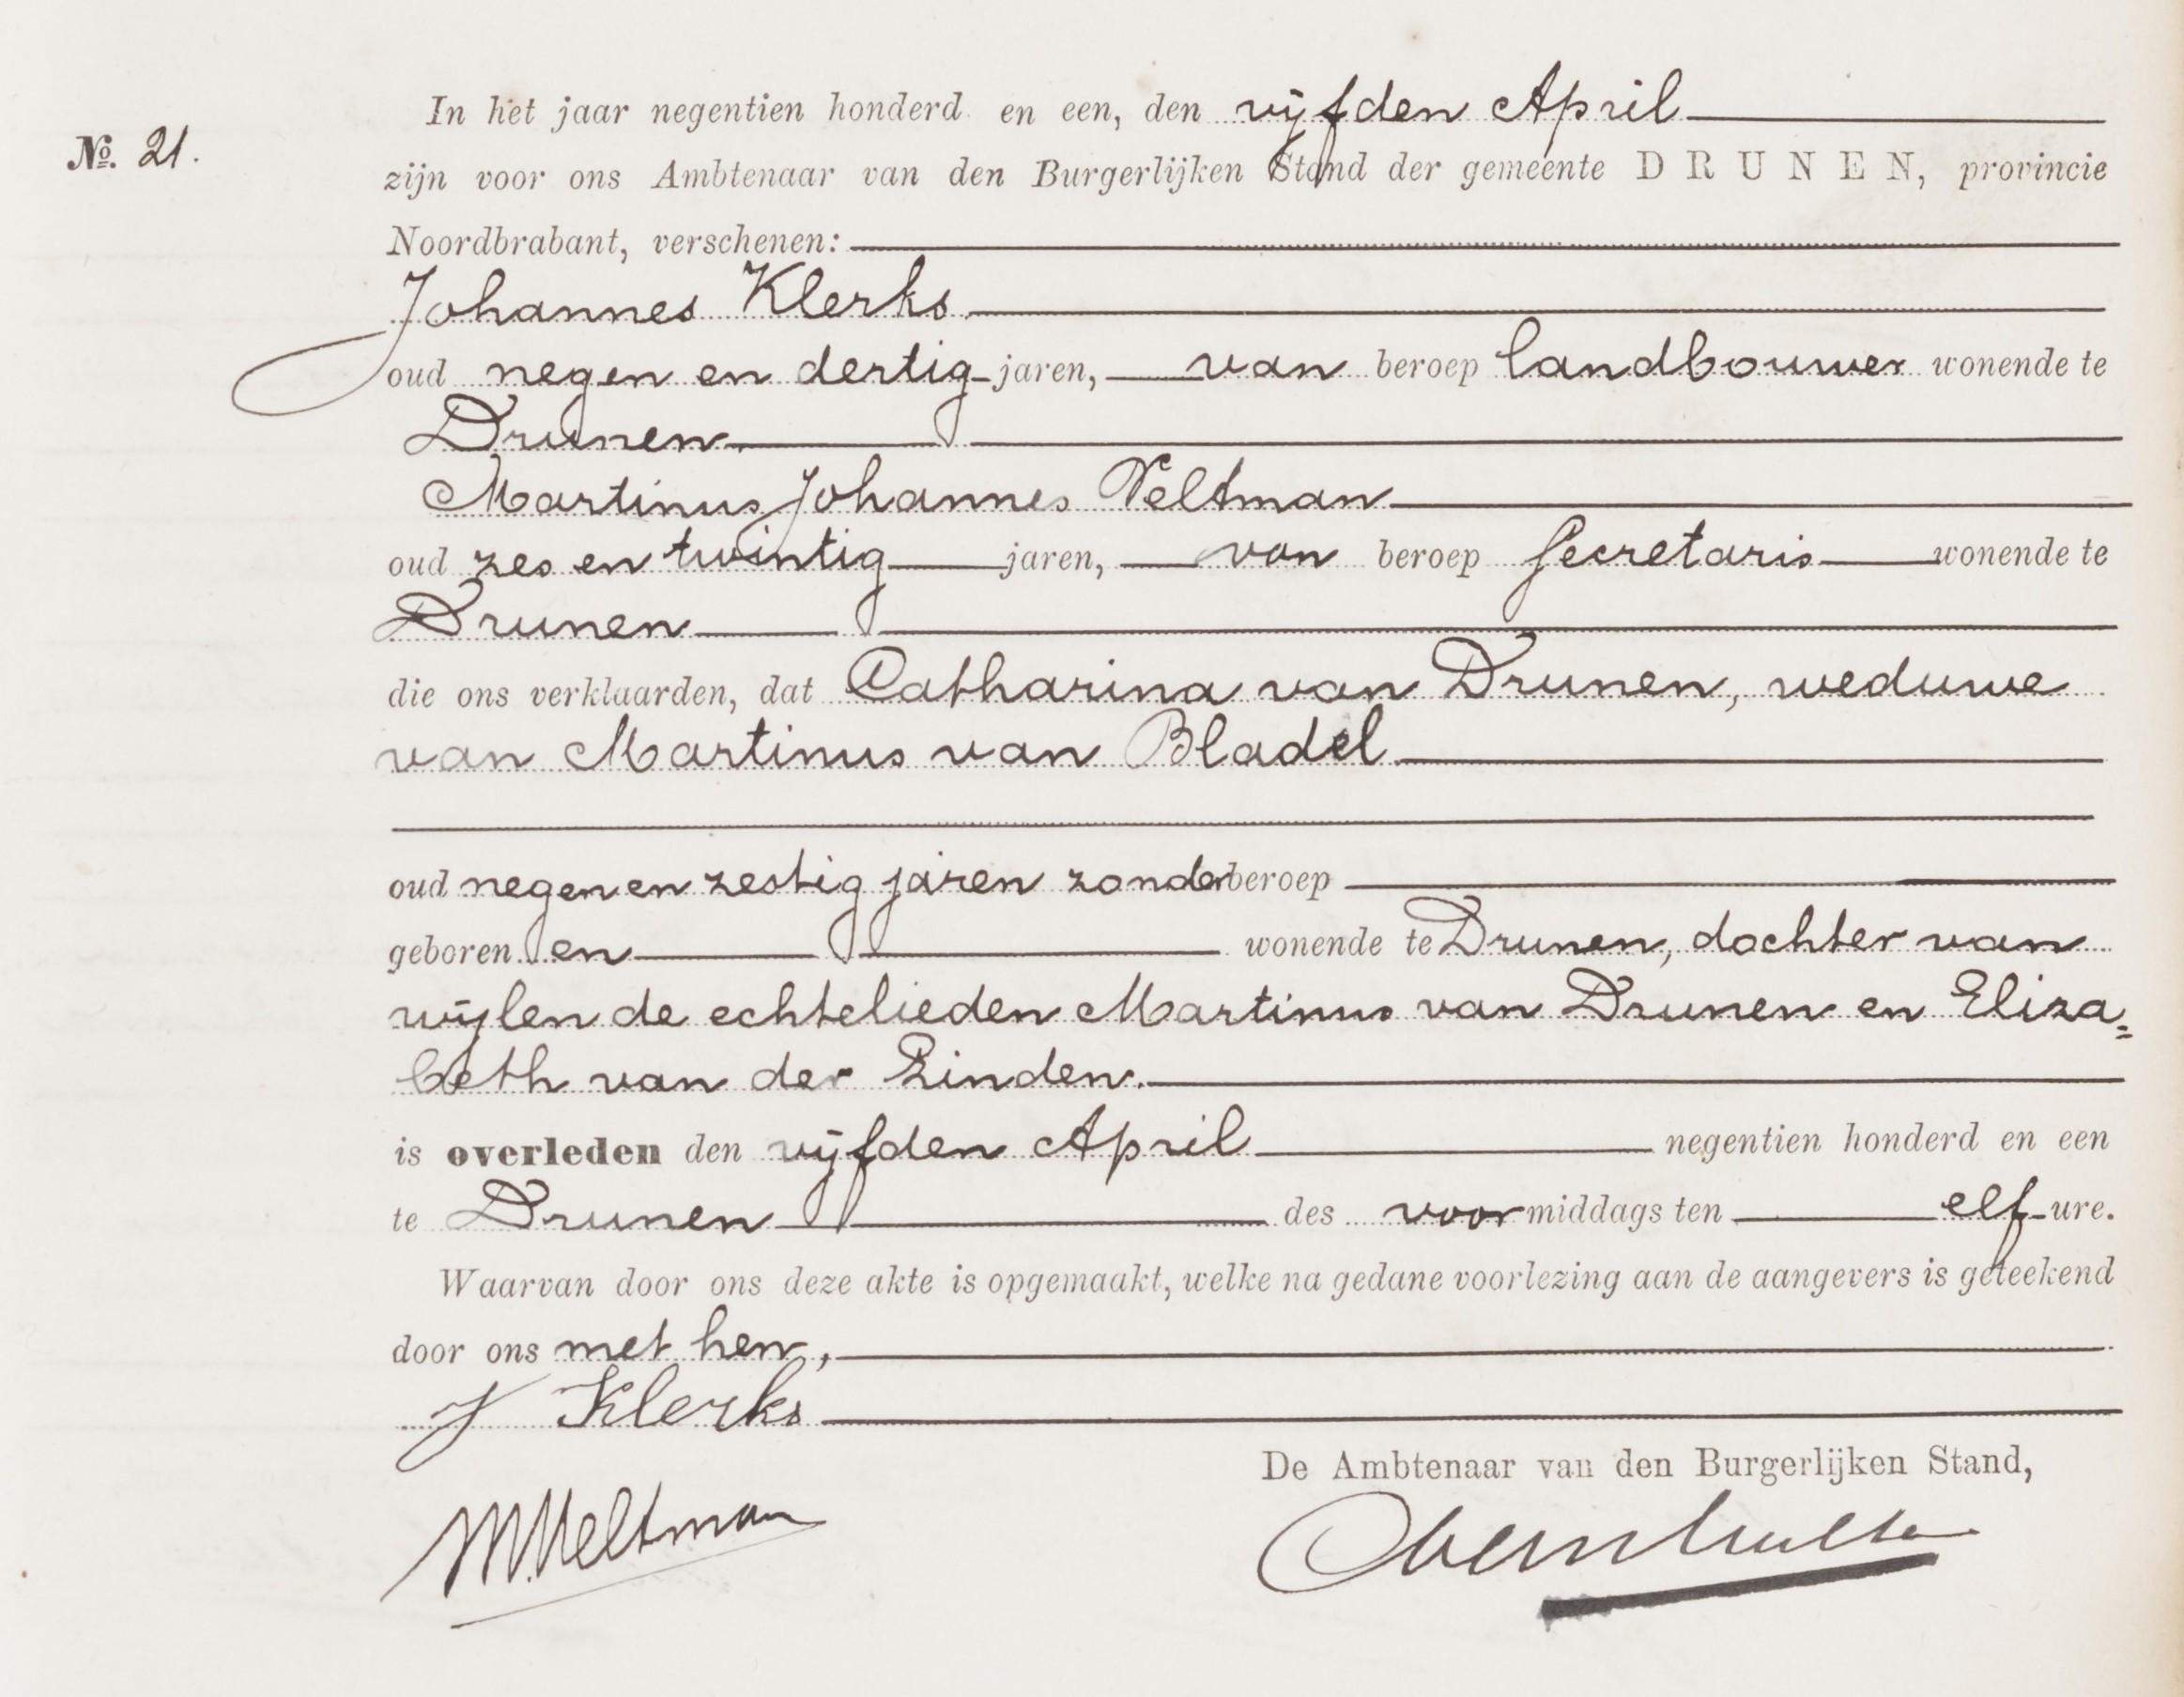 In het jaar negentien honderd en een, den vijfden April
No. 21.
zijn voor ons Ambtenaar van den Burgerlijken Stand der gemeente DRUNEN, provincie
Noordbrabant, verschenen:
Johannes Klerks
oud negen en dertig jaren, van beroep landbouwer wonende te
Drunen
Martinus Johannes Veltman
oud zes en twintig jaren, van beroep Secretaris wonende te
Drunen
die ons verklaarden, dat Catharina van Drunen, weduwe
van Martinus van Bladel
oud negen en zestig jaren zonder beroep
geboren en wonende te Drunen, dochter van
wijlen de echtelieden Martinus van Drunen en Eliza=
beth van der Linden.
is overleden den vijfden April negentien honderd en een
te Drunen des voormiddags ten elf ure.
Waarvan door ons deze akte is opgemaakt, welke na gedane voorlezing aan de aangevers is geteekend
door ons met hen,
J Klerks
De Ambtenaar van den Burgerlijken Stand,
MVeltman